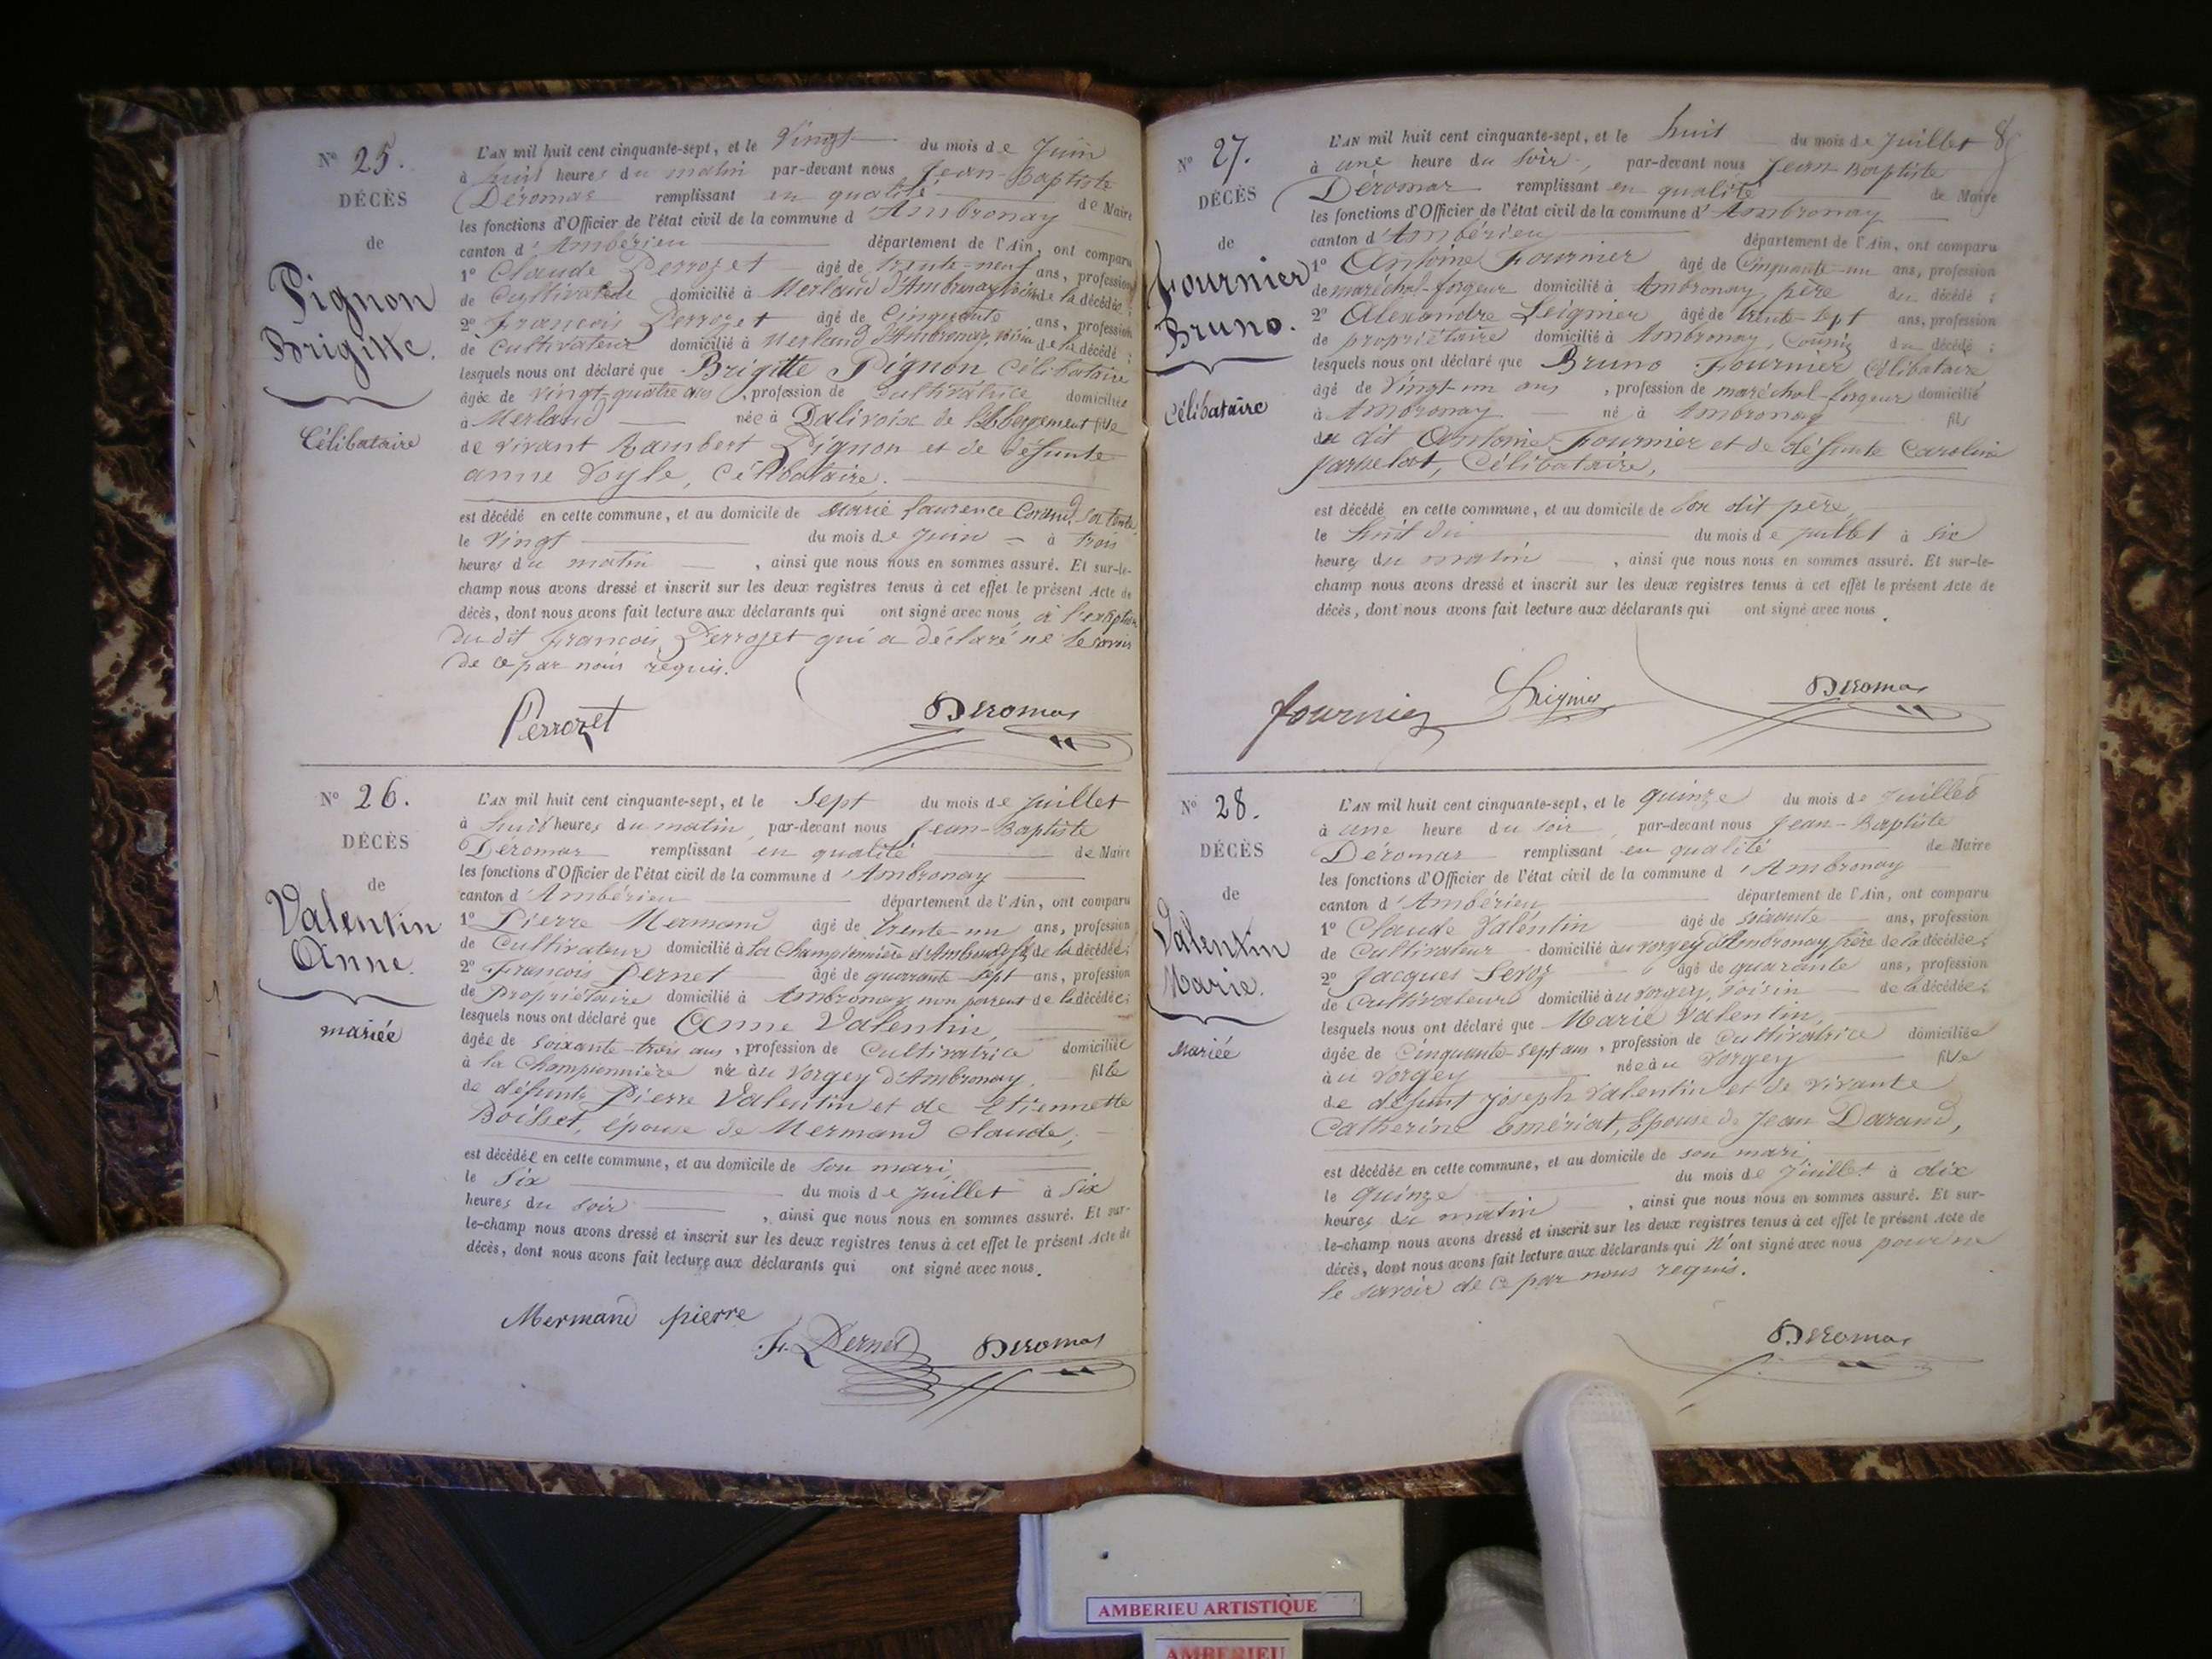 N° 25.
DÉCÈS
de
Pignon
Brigitte.
Célibataire
L'AN mil huit cent cinquante-sept, et le Vingt du mois de Juin
à huit heures du matin par-devant nous Jean-Baptiste
Déromas remplissant en qualité de Maire
les fonctions d'Officier de l'état civil de la commune d'Ambronay
canton d'Ambérieu département de l'Ain, ont comparu
1° Claude Perrozet âgé de trente-neuf ans, profession
de Cultivateur domicilié à Merland d'Ambronay voisin de la décédée ;
2° François Perrozet âgé de Cinquante ans, profession
de Cultivateur domicilié à Merland d'Ambronay, voisin de la décédé ;
lesquels nous ont déclaré que Brigitte Pignon Célibataire
âgée de vingt-quatre ans, profession de Cultivatrice domiciliée
à Merland née à Dalivoix de l'Abergement fille
de vivant Rambert Pignon et de défunte
anne Loyle, Célibataire.
est décédé en cette commune, et au domicile de Marie Laurence sa tante
le Vingt du mois de Juin à trois
heures du matin, ainsi que nous nous en sommes assuré. Et sur-le-
champ nous avons dressé et inscrit sur les deux registres tenus à cet effet le présent Acte de
décès, dont nous avons fait lecture aux déclarants qui ont signé avec nous à l'exception
du dit François Perrozet qui a déclaré ne le savoir
de ce par nous requis.
Perrozet Deromas
N° 26.
DÉCÈS
de
Valentin
Anne.
mariée
L'AN mil huit cent cinquante-sept, et le Sept du mois de Juillet
à huit heures du matin, par-devant nous Jean-Baptiste
Déromas remplissant en qualité de Maire
les fonctions d'Officier de l'état civil de la commune d'Ambronay
canton d'Ambérieu département de l'Ain, ont comparu
1° Pierre Mermand âgé de trente-un ans, profession
de Cultivateur domicilié à la Championnière d'Ambronay fils de la décédée ;
2° François Pernet âgé de quarante-sept ans, profession
de Propriétaire domicilié à Ambronay non parent de la décédée ;
lesquels nous ont déclaré que Anne Valentin,
âgée de soixante-trois ans, profession de Cultivatrice domiciliée
à la Championnière née au Vorgey d'Ambronay, fille
de défunts Pierre Valentin et de Etiennette
Boisset, épouse de Mermand Claude,
est décédée en cette commune, et au domicile de son mari,
le Six du mois de Juillet à six
heures du soir, ainsi que nous nous en sommes assuré. Et sur-
le-champ nous avons dressé et inscrit sur les deux registres tenus à cet effet le présent Acte de
décès, dont nous avons fait lecture aux déclarants qui ont signé avec nous.
Mermand pierre F. Pernet Deromas
N° 27.
DÉCÈS
de
Fournier
Bruno.
Célibataire
L'AN mil huit cent cinquante-sept, et le huit du mois de Juillet
à une heure du soir, par-devant nous Jean-Baptiste
Déromas remplissant en qualité de Maire
les fonctions d'Officier de l'état civil de la commune d'Ambronay
canton d'Ambérieu département de l'Ain, ont comparu
1° Antoine Fournier âgé de Cinquante-un ans, profession
de maréchal-forgeur domicilié à Ambronay, père du décédé ;
2° Alexandre Leignier âgé de trente-sept ans, profession
de propriétaire domicilié à Ambronay, Cousin du décédé ;
lesquels nous ont déclaré que Bruno Fournier Célibataire
âgé de Vingt-un ans, profession de maréchal-forgeur domicilié
à Ambronay né à Ambronay fils
du dit Antoine Fournier et de défunte Caroline
Célibataire,
est décédé en cette commune, et au domicile de Son dit père,
le huit du du mois de juillet à six
heures du matin, ainsi que nous nous en sommes assuré. Et sur-le-
champ nous avons dressé et inscrit sur les deux registres tenus à cet effet le présent Acte de
décès, dont nous avons fait lecture aux déclarants qui ont signé avec nous.
fournier Leignier Deromas
N° 28.
DÉCÈS
de
Valentin
Marie.
Mariée
L'AN mil huit cent cinquante-sept, et le quinze du mois de Juillet
à une heure du soir, par-devant nous Jean-Baptiste
Déromas remplissant en qualité de Maire
les fonctions d'Officier de l'état civil de la commune d'Ambronay
canton d'Ambérieu département de l'Ain, ont comparu
1° Claude Valentin âgé de soixante ans, profession
de Cultivateur domicilié au vorgey d'Ambronay frère de la décédée ;
2° Jacques Servoz âgé de quarante ans, profession
de Cultivateur domicilié au vorgey, voisin de la décédée ;
lesquels nous ont déclaré que Marie Valentin,
âgée de Cinquante-sept ans, profession de Cultivatrice domiciliée
au vorgey née au Vorgey fille
de défunt Joseph Valentin et de vivante
Catherine Emériat, Epouse de Jean Darand,
est décédée en cette commune, et au domicile de son mari,
le quinze du mois de Juillet à dix
heures du matin, ainsi que nous nous en sommes assuré. Et sur-
le-champ nous avons dressé et inscrit sur les deux registres tenus à cet effet le présent Acte de
décès, dont nous avons fait lecture aux déclarants qui N'ont signé avec nous pour ne
le savoir de ce par nous requis.
Deromas
AMBERIEU ARTISTIQUE
AMBERIEU